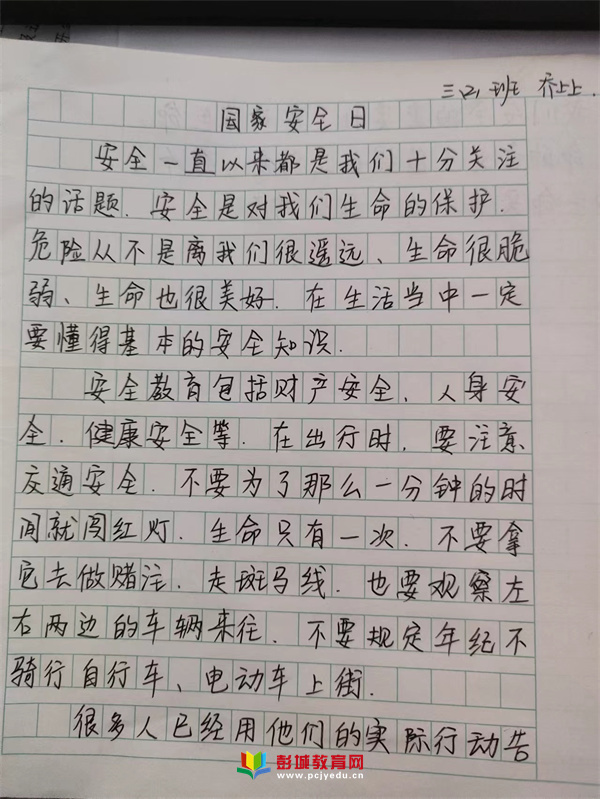 三(2)班 乔上上.
国家安全日
安全一直以来都是我们十分关注
的话题.安全是对我们生命的保护.
危险从不是离我们很遥远、生命很脆
弱、生命也很美好.在生活当中一定
要懂得基本的安全知识.
安全教育包括财产安全、人身安
全.健康安全等.在出行时.要注意
交通安全.不要为了那么一分钟的时
间就闯红灯.生命只有一次.不要拿
它去做赌注.走斑马线.也要观察左
右两边的车辆来往.不要规定年纪不
骑行自行车、电动车上街.
很多人已经用他们的实际行动告
彭城教育网
www.pcjyedu.cn